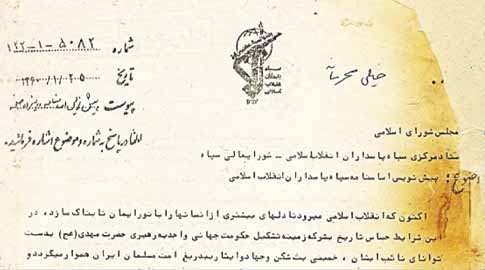 شماره ۱۲۲-۱-۵۰۸۲
تاریخ ۱۳۶۰/۱/۲۰۵
پیوست پیش نویس اساسنامه
لطفا در پاسخ به شماره و موضوع اشاره فرمائید.
سپاه
پاسداران
انقلاب
اسلامی
خیلی محرمانه
مجلس شورای اسلامی
ستاد مرکزی سپاه پاسداران انقلاب اسلامی - شورایعالی سپاه
موضوع: پیش نویس اساسنامه سپاه پاسداران انقلاب اسلامی
اکنون که انقلاب اسلامی میرود تا دلهای بیشتری از انسانها را با نور ایمان تابناک سازد، در
این شرایط حساس تاریخ بشر که زمینه تشکیل حکومت جهانی واحد به رهبری حضرت مهدی (عج) بدست
توانای نائب ایشان، خمینی بت شکن و جهاد و ایثار بیدریغ امت مسلمان ایران هموار میگردد و